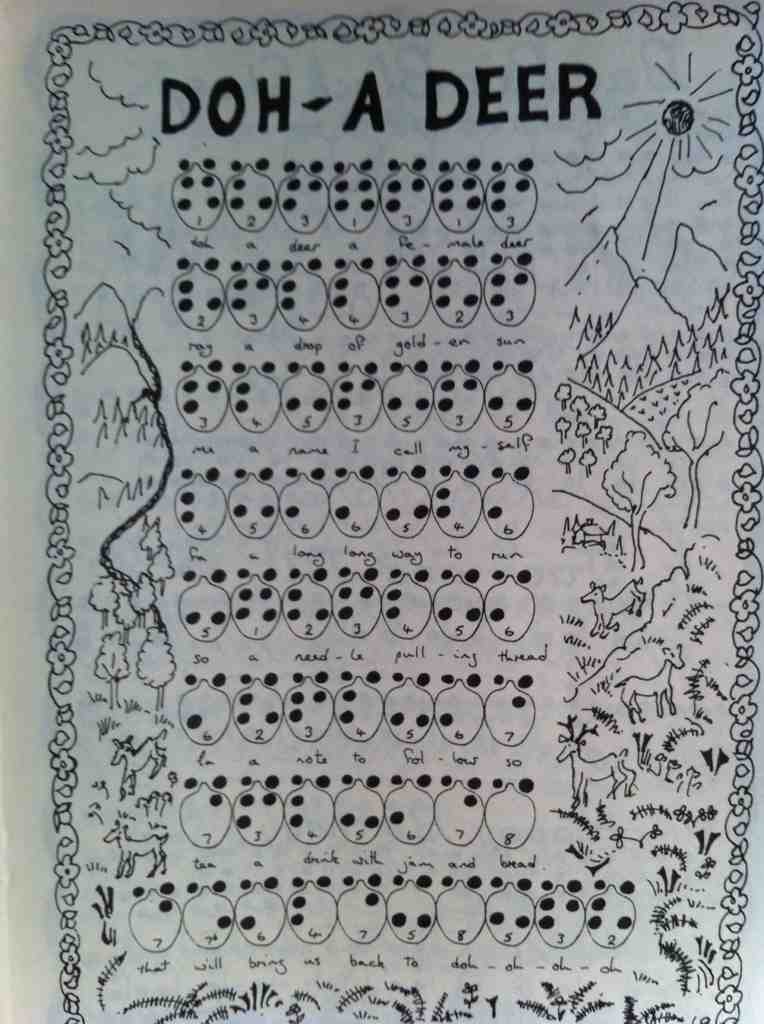 DOH-A DEER
1 2 3 1 3 1 3
doh a deer a fe-male deer
2 3 4 4 3 2 3
ray a drop of gold-en sun
3 4 5 3 5 3 5
me a name I call my-self
4 5 6 6 5 4 6
fa a long long way to run
5 1 2 3 4 5 6
so a need-le pull-ing thread
6 2 3 4 5 6 7
la a note to fol-low so
7 3 4 5 6 7 8
tea a drink with jam and bread.
7 7+ 6 4 7 5 8 5 3 2
that will bring us back to doh-oh-oh-oh